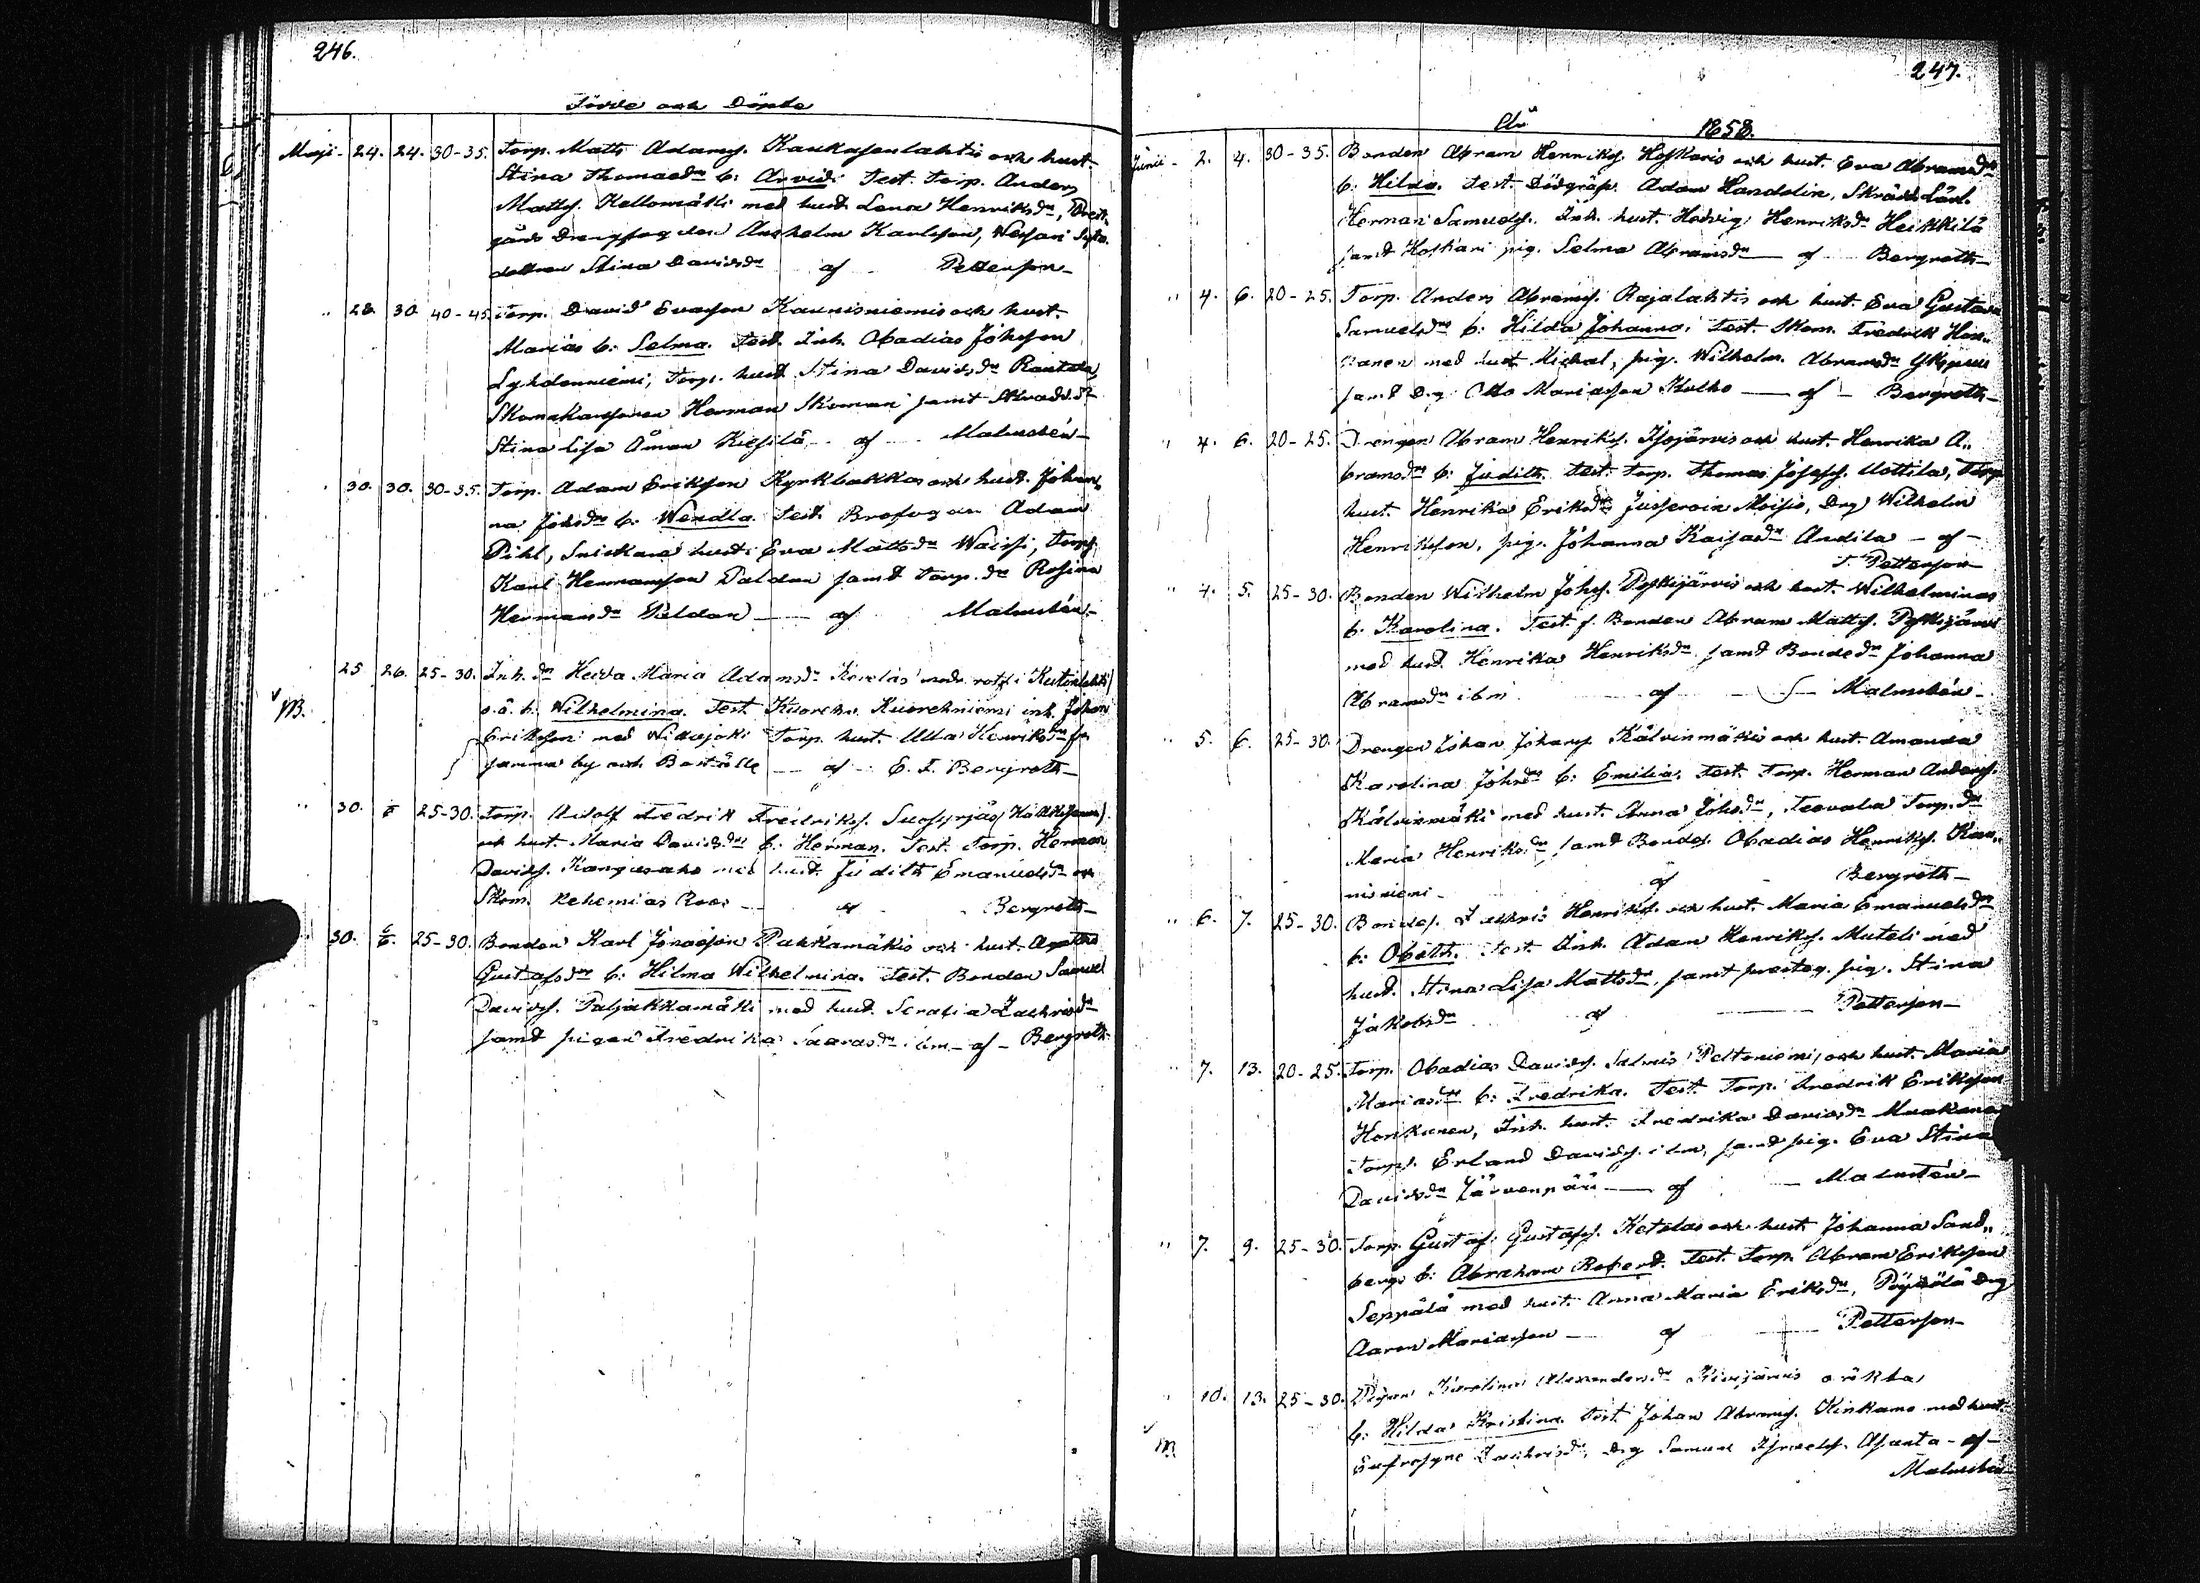 246.
Födde och Döpte
Maji - 24. 24. 30-35. Torp. Matts Adamss. Kaukasenlahtis och hust.
Stina Thomasdr b: Arvid. Test. Torp. Anders
Mattss. Kellomäki med hust. Lena Henriksdr,
gårds Drengfogden Anshelm Karlsson,
dottren Stina Davidsdr af Petterson
" 28. 30. 40-45. Torp. David Evasson Kaunisniemis och hust.
Marias b: Selma. Test. Inh. Obadias Johsson
Lyhdenniemi, Torp. hust. Stina Davidsdr Rantala
Herman Skoman samt
Stina Lisa Åman Kiesilä af Malmstén
" 30. 30. 30-35. Torp. Adam Eriksson Kyrkbackas och hust. Johan-
na Johsdr b: Wendla. Test. Adam
Pihl, Snickare hust. Eva Mattsdr Waissi, Torps.
Karl Hermansson Paldan samt Torp. dr Rosina
Hermansdr Paldan af Malmstén
25 26. 25-30. Inh. dr Hedda Maria Adamsdr
M. o.ä. b. Wilhelmina. Test. inh. Johan
Eriksson med Torp. hust. Ulla Henriksdr fr
samma by och af E. F. Bergroth
" 30. 25-30. Torp. Adolf Fredrik Fredrikss.
och hust. Maria Davidsdr b: Herman. Test. Torp. Herman
Davidss. Kangasaho med hust. Judith Emanuelsdr och
Skom. Nehemias Roos af Bergroth
30. 6/6. 25-30. Bonden Karl Jonasson Pahkamäkis och hust. Agatha
Gustafsdr b: Hilma Wilhelmina. Test. Bonden Samuel
Davidss. Paljakkamäki med hust. Serafia Zachrisdr
samt pigan Fredrika ibm - af - Bergroth
247.
År 1858.
Junii - 2. 4. 30-35. Bonden Abram Henrikss. Koskaris och hust. Eva Abramsdr
b: Hilda. Test. Dödgräf. Adam Handolin, Skrädd. Lärl.
Herman Samuelss. Inh. hust. Hedvig Henriksdr Heikkilä
samt Koskari pig. Selma Abramsdr af Bergroth
" 4. 6. 20-25. Torp. Anders Abramss. Rajalahtis och hust. Eva Gustava
Samuelsdr b: Hilda Johanna. Test. Skom. Fredrik Hon-
kanen med hust. Michal, pig. Wilhelm. Abramsdr
samt Drg Otto Mariasson Kulho af - Bergroth
" 4. 6. 20-25. Drengen Abram Henrikss. Isojärvis och hust. Henrika A-
bramsdr b: Judith. Test. Torp. Thomas Josefss. Uottila, Torp.
hust. Henrika Eriksdr Moisio, Drg Wilhelm
Henriksson, pig. Johanna Kaisadr Andila - af -
Petterson
" 4. 5. 25-30. Bonden Wilhelm Johss. Pyhäjärvis och hust. Wilhelminas
b: Karolina. Test. f. Bonden Abram Mattss. Pyhäjärvi
med hust. Henrika Henriksdr samt Bonde dr Johanna
Abramsdr ibm af Malmstén
" 5. 6. 25-30. Drengen Johan Johanss. Kälvinmäkis och hust. Amanda
Karolina Johsdr b: Emilia. Test. Torp. Herman Anderss.
Kälvinmäki med hust. Anna Johsdr, Teevala Torp. dr
Maria Henriksdr samt Bondes. Obadias Henrikss. Kau-
nisniemi af Bergroth
" 6. 7. 25-30. Bondes. Zachris Henrikss. och hust. Maria Emanuelsdr
b: Obeth. Test. Inh. Adam Henrikss. Muteli med
hust. Stina Lisa Mattsdr, samt prosteg. pig. Stina
Jakobsdr af Petterson
" 7. 13. 20-25. Torp. Obadias Davidss. Salmis Peltoniemi och hust. Maria
Mariasdr b: Fredrika. Test. Torp. Fredrik Eriksson
Honkanen, Inh. hust. Fredrika Davidsdr
Torps. Erland Davidss. ibm, samt pig. Eva Stina
Davidsdr Järvenpää af Malmstén
" 7. 9. 25-30. Torp. Gustaf Gustafss. Ketolas och hust. Johanna Sand-
bergs b: Abraham Robert. Test. Torp. Abram Eriksson
Seppälä med hust. Anna Maria Eriksdr, Pöysälä Drg
Aaron Mariasson af Petterson
" 10. 13. 25-30. Pigan Karolina Alexandersdr Kivijärvis oäkta
M b: Hilda Kristina. Test. Johan Abramss. Kinkamo med hust.
Eufrosyne Zachrisdr, Drg Samuel Israelss. Asunta - af -
Malmstén